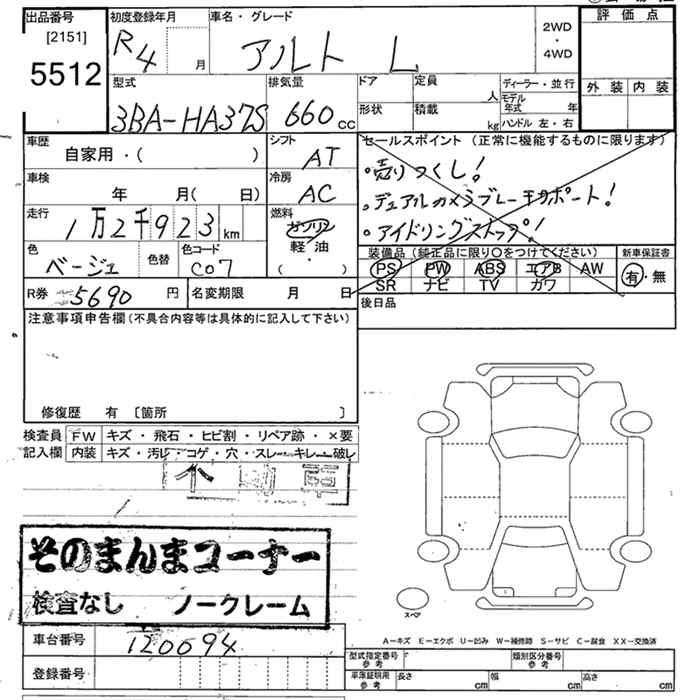 出品番号 初度登録年月 車名・グレード 2WD ・ 4WD 評価点
[2151]
5512 R4 月 アルト L
外装 内装
型式 排気量 ドア 定員 人 ディーラー・並行
モデル年式 年
3BA-HA37S 660 cc 形状 積載 kg ハンドル 左・右
車歴 シフト セールスポイント (正常に機能するものに限ります)
自家用・( ) AT
・売りつくし!
車検 冷房
年 月( 日) AC
・デュアルカメラブレーキサポート!
走行 燃料
1万2千923km ガソリン
・アイドリングストップ!
軽・油
( )
色 色替 色コード 装備品 (純正品に限り○をつけてください) 新車保証書
ベージュ C07 PS PW ABS エアB AW 有・無
SR ナビ TV カワ
R券 5690 円 名変期限 月 日
後日品
注意事項申告欄(不具合内容等は具体的に記入して下さい)
修復歴 有 [箇所 ]
検査員 FW キズ・飛石・ヒビ割・リペア跡・×要
記入欄 内装 キズ・汚レ・コゲ・穴・スレ・キレ・破レ
そのまんまコーナー
検査なし ノークレーム
スペア
車台番号 120694
A－キズ E－エクボ U－凹み W－補修跡 S－サビ C－腐食 XX－交換済
登録番号
型式指定番号 参考 類別区分番号 参考
車庫証明用 参考 長さ cm 幅 cm 高さ cm